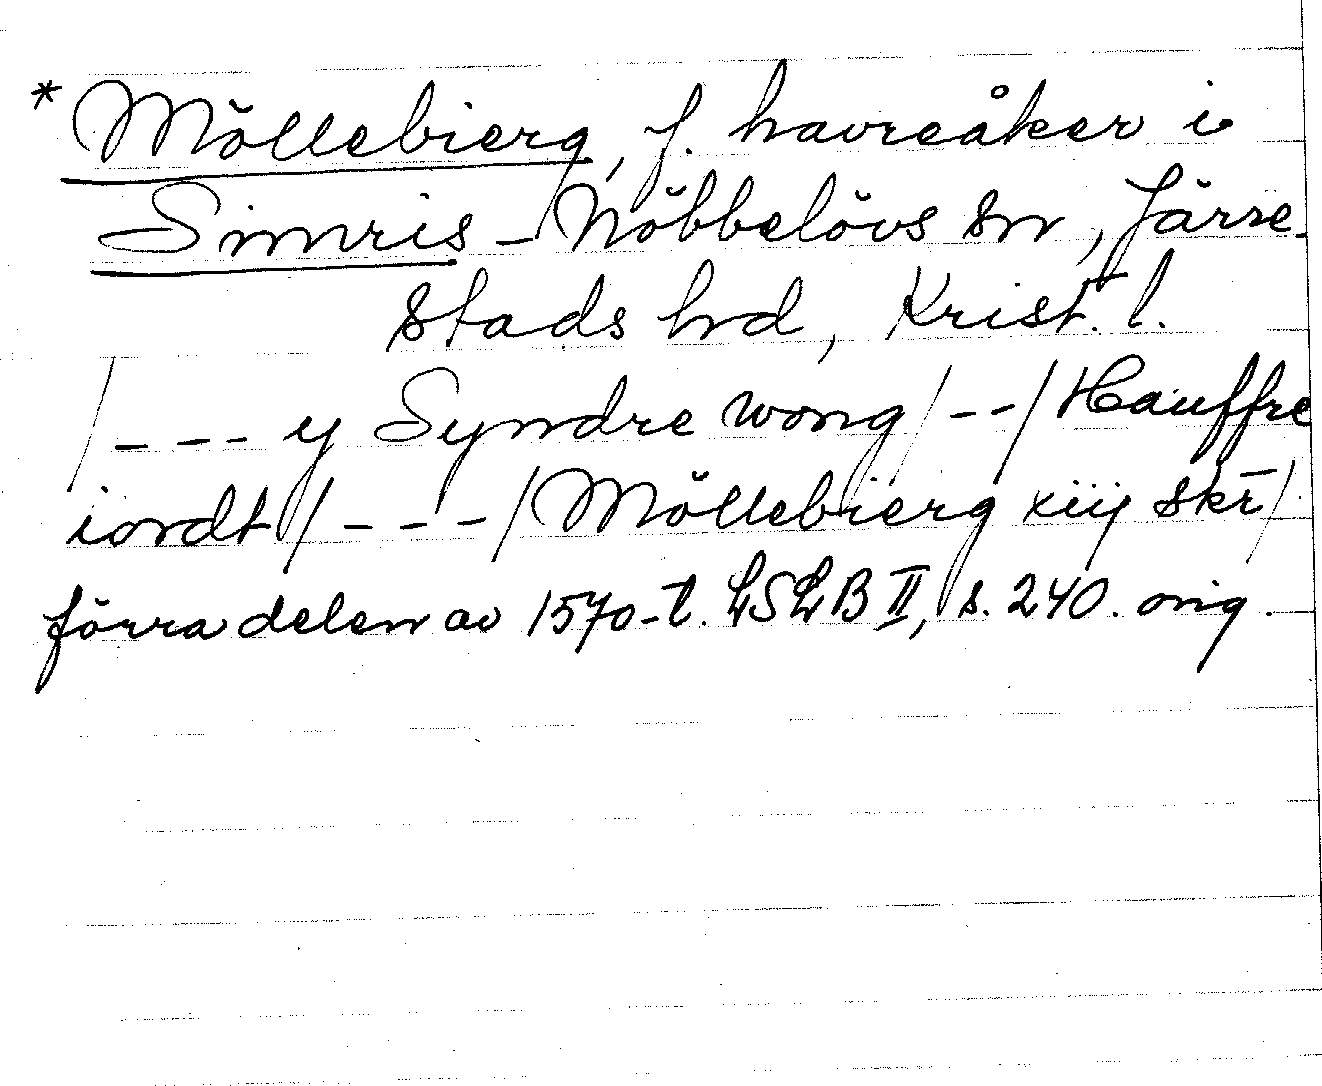 * Möllebierg, f. havreåker i
Simris - Nöbbelövs sn, Järre-
stads hd, Krist. l.
/ - - - y Syndre wong / - - / Hauffre
iordt / - - - / Möllebierg xiij skr̄ /
förra delen av 1570-t. LSLB II, s. 240. orig.